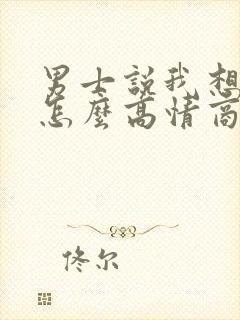 男士説我想
怎麼高情商
佟尔